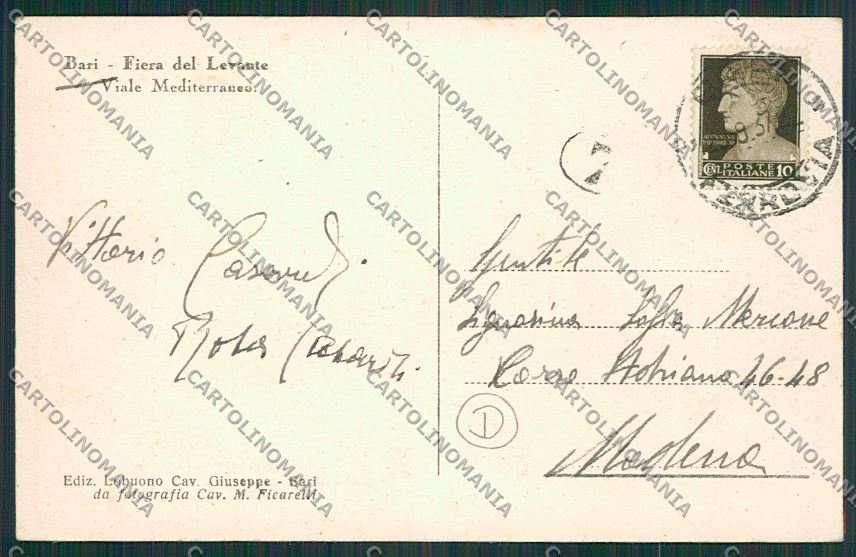 Bari - Fiera del Levante
Viale Mediterraneo.
POSTE
ITALIANE
CENT. 10
7
Vittorio
Gentile
Signorina Sofia Mercone
Corso Adriano 46-48
Modena
D
Ediz. Lobuono Cav. Giuseppe - Bari
da fotografia Cav. M. Ficarelli
CARTOLINOMANIA